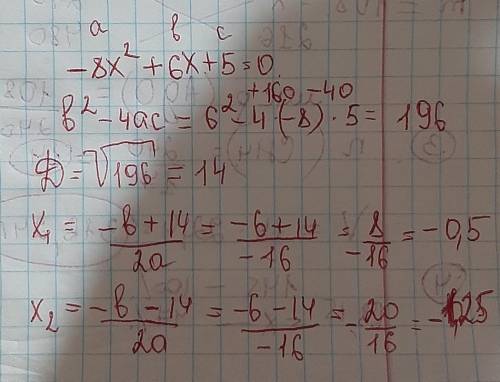 a в c
-8x² + 6x + 5 = 0
+160 -40
в² - 4ac = 6² - 4(-8)·5 = 196
D = √196 = 14
x₁ = -в + 14 / 2a = -6 + 14 / -16 = 8 / -16 = -0,5
x₂ = -в - 14 / 2a = -6 - 14 / -16 = - 20 / 16 = -1,25